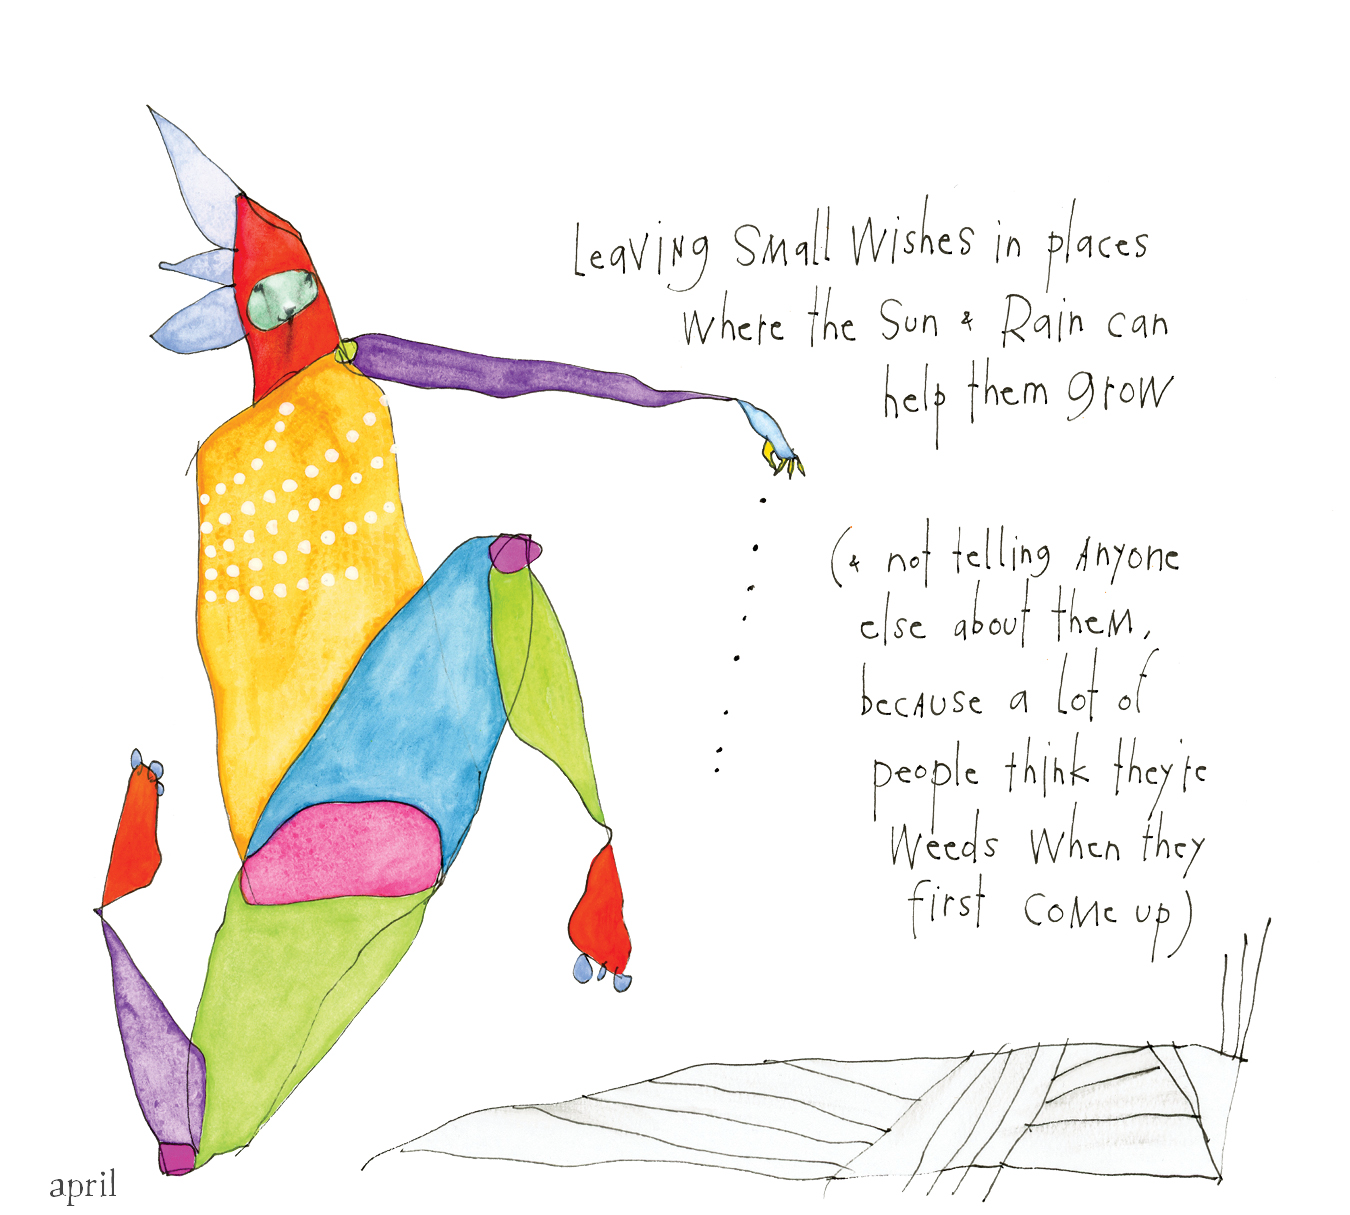 Leaving Small Wishes in places
Where the Sun & Rain can
help them grow
(& not telling Anyone
else about them,
because a lot of
people think they're
Weeds When they
first come up)
april